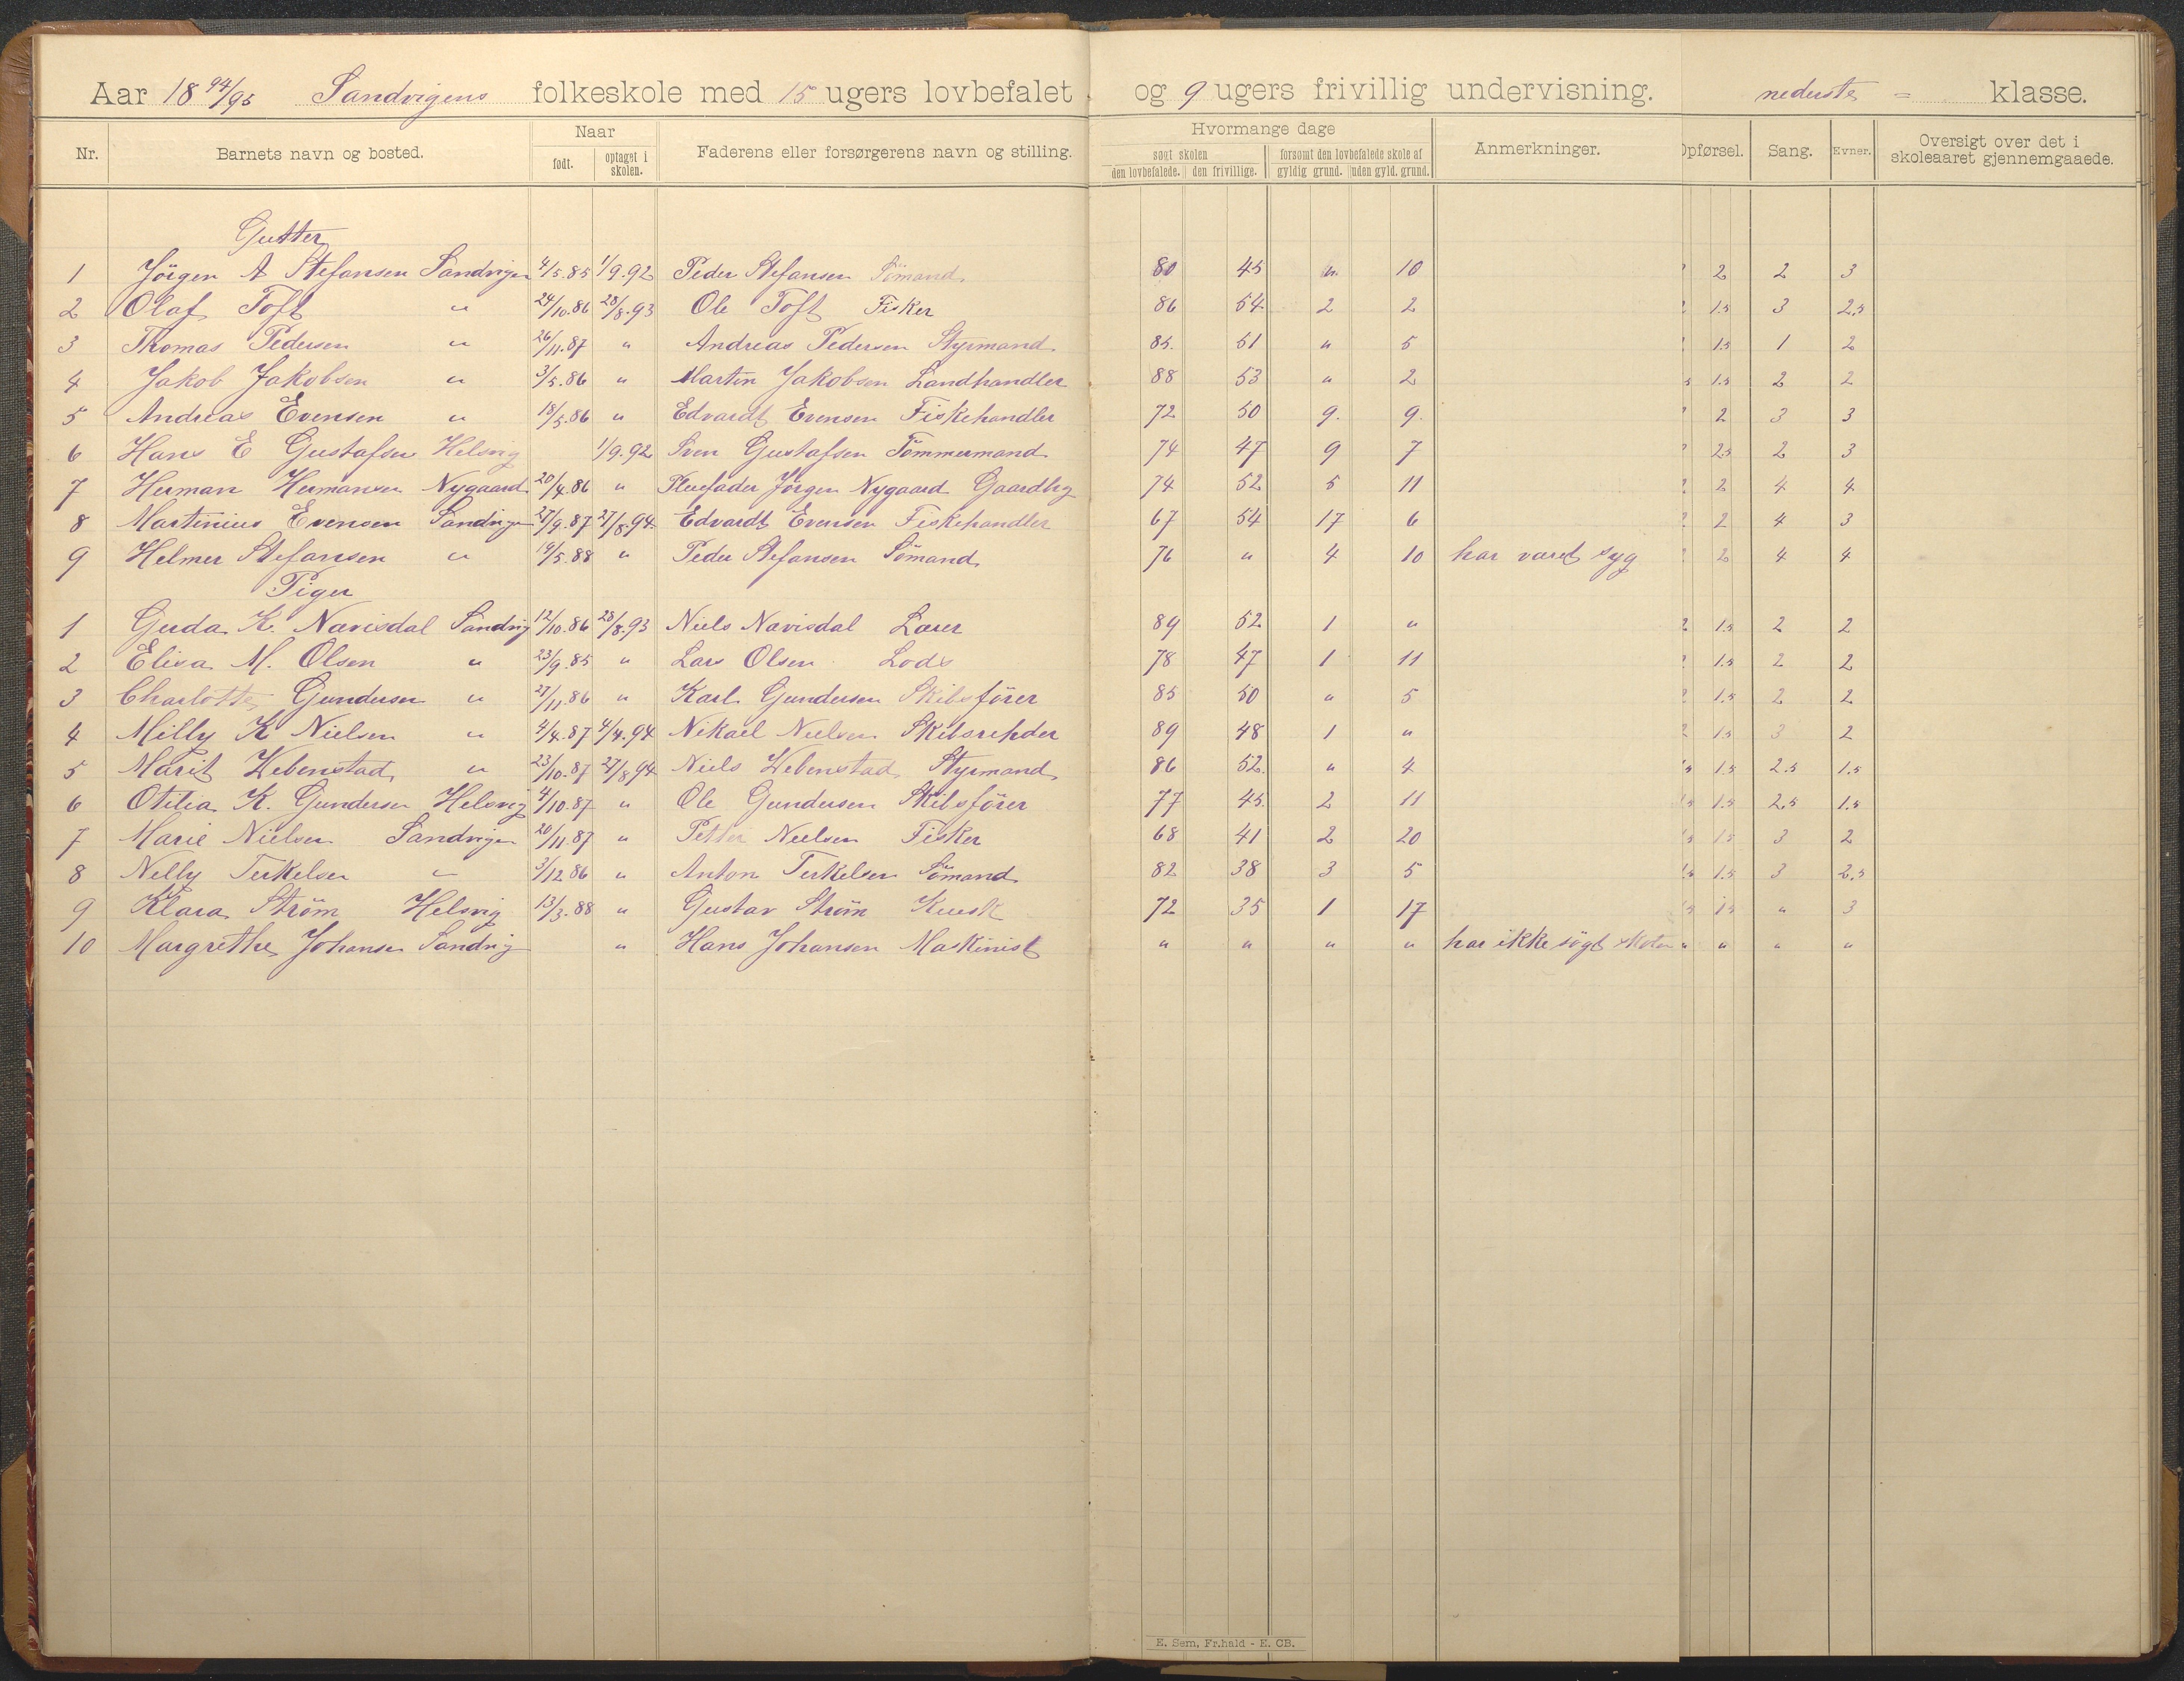 Aar 18 94/95 Sandvigens folkeskole med 15 ugers lovbefalet og 9 ugers frivillig undervisning. nederste = klasse.
Nr. Barnets navn og bosted. Naar født. optaget i skolen. Faderens eller forsørgerens navn og stilling. Hvormange dage søgt skolen den lovbefalede. den frivillige. forsømt den lovbefalede skole af gyldig grund. uden gyld. grund. Anmerkninger. Opførsel. Sang. Evner. Oversigt over det i skoleaaret gjennemgaaede.
Gutter
1 Jörgen A Stefansen Sandvigen 4/5.85 1/9.92 Peder Stefansen Sömand 80 45 " 10 2 2 3
2 Olaf Toft " 24/10.86 28/8.93 Ole Toft Fisker 86 54 2 2 1.5 3 2,5
3 Thomas Pedersen " 26/11.87 " Andreas Pedersen Styrmand 85. 51 " 5 1.5 1 2
4 Jakob Jakobsen " 3/5.86 " Martin Jakobsen Landhandler 88 53 " 2 1.5 2 2
5 Andreas Evensen " 18/5.86 " Edvardt Evensen Fiskehandler 72 50 9. 9. 2 3 3
6 Hans E Gustafsen Helsvig 1/9.92 Sven Gustafsen Tömmermand 74 47 9 7 2,5 2 3
7 Herman Hermansen Nygaard 20/4.86 " Pleiefader Jörgen Nygaard Gaardbrg 74 52 5 11 2 2 4 4
8 Martinius Evensen Sandvigen 27/9.87 27/8.94 Edvardt Evensen Fiskehandler 67 54 17 6 2 2 4 3
9 Helmer Stefansen " 19/5.88 " Peder Stefansen Sömand 76 " 4 10 har været syg 2 4 4
Piger
1 Gerda K. Navisdal Sandvig 12/10.86 28/8.93 Niels Navisdal Lærer 89 52 1 " 2 1.5 2 2
2 Elisa M. Olsen " 23/9.85 " Lars Olsen Lods 78 47 1 11 1.5 2 2
3 Charlotte Gundersen " 27/11.86 " Karl Gundersen Skibsförer 85 50 " 5 2 1.5 2 2
4 Milly K Nielsen " 4/4.87 4/4.94 Nikael Nielsen Skibsrehder 89 48 1 " 2 1.5 3 2
5 Marit Webenstad " 23/10.87 27/8.94 Niels Webenstad Styrmand 86 52. " 4 1.5 2.5 1.5
6 Otilia K. Gundersen Helsvig 4/10.87 " Ole Gundersen Skibsförer 77 45. 2 11 1.5 2,5 1.5
7 Marie Nielsen Sandvigen 20/11.87 " Petter Nielsen Fisker 68 41 2 20 1.5 3 2
8 Nelly Terkelsen " 3/12.86 " Anton Terkelsen Sömand 82 38 3 5 1.5 3 2,5
9 Klara Ström Helsvig 13/3.88 " Gustav Ström Kusk 72 35 1 17 1.5 " 3
10 Margrethe Johansen Sandvig " Hans Johansen Maskinist " " " " har ikke sögt skolen " " " "
E. Sem, Fr.hald - E. CB.